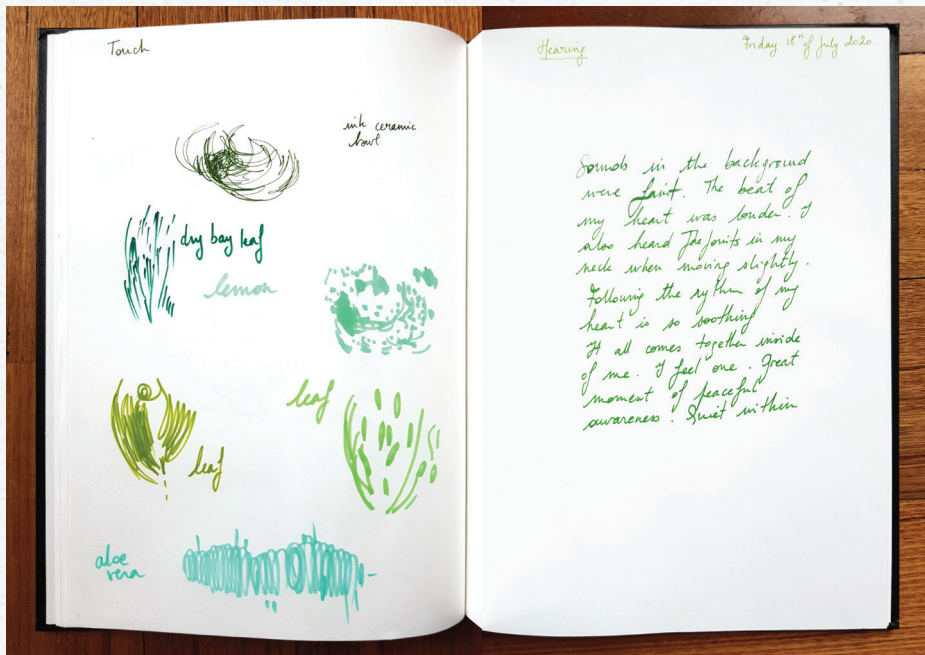 Touch
ink ceramic
bowl
dry bay leaf
lemon
leaf
leaf
aloe
vera
Hearing
Friday 18th of July 2020
Sounds in the background
were faint. The beat of
my heart was louder. I
also heard the joints in my
neck when moving slightly.
Following the rythm of my
heart is so soothing
It all comes together inside
of me. I feel one. Great
moment of peaceful
awareness. Quiet within